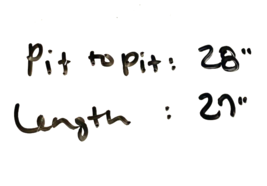 Pit to pit: 28"
Length : 27"